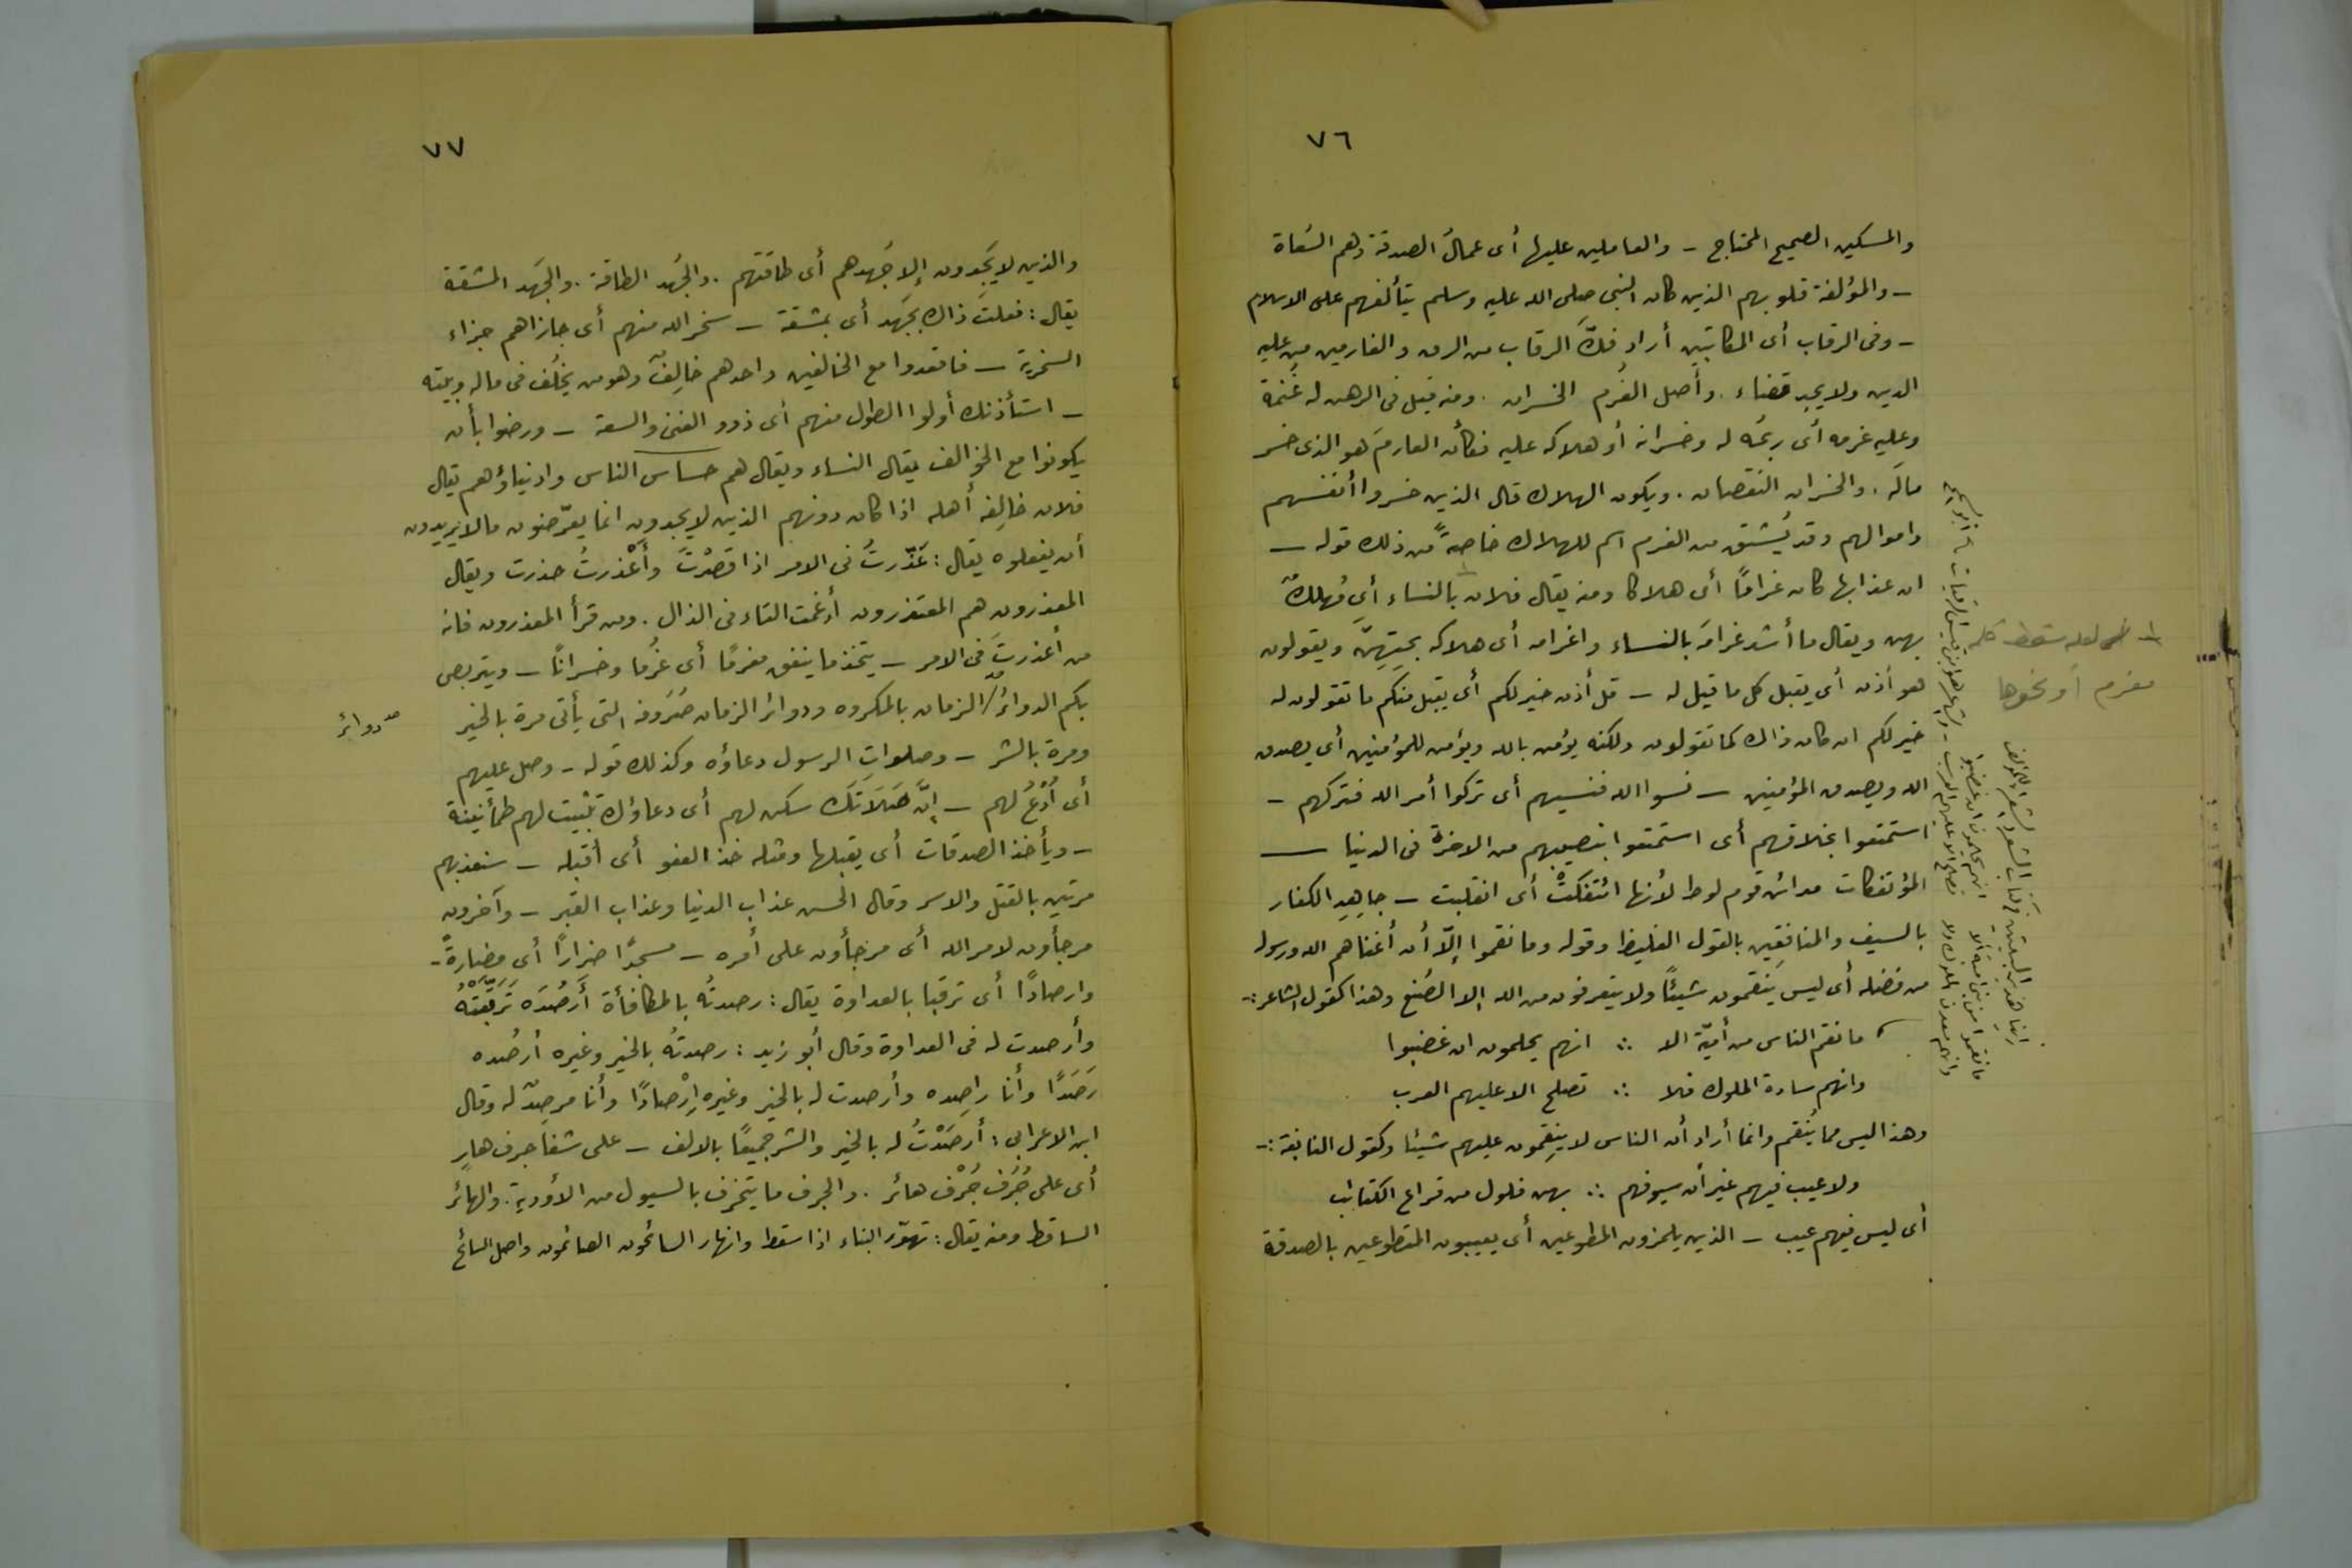 ٧٦
والمسكين الصحيح المحتاج – والعاملين عليها أى عمالُ الصدقة وهم السُعاة
– والمؤلفة قلوبهم الذين كان النبى صلى الله عليه وسلم يتألفهم على الاسلام
– وفى الرقاب أى المكاتبين أراد فكَّ الرقاب من الرق والغارمين من عليه
الدين ولا يجد قضاء . وأصل الغُرم الخسران . ومنه قيل فى الرهن له غُنمة
وعليه غرمه أى ربحُه له وخسرانه أو هلاكه عليه فكأن الغارمَ هو الذى خسر
مالَه . والخسران النقصان . ويكون الهلاك قال الذين خسروا أنفسهم
واموالهم وقد يُشتق من الغرم اسم للهلاك خاصةً من ذلك قوله –
ان عذابها كان غرامًا أى هلاكا ومنه يقال فلان بالنساء أى مُهلكٌ
بهن ويقال ما أشد غرامَه بالنساء واغرامه أى هلاكه بحبّهنّ ويقولون
هو أذن أى يقبل كل ما قيل له – قل أذن خير لكم أى يقبل منكم ما تقولون له
خير لكم ان كان ذاك كما تقولون ولكنه يؤمن بالله ويؤمن للمؤمنين أى يصدق
الله ويصدق المؤمنين – نسوا الله فنسيهم أى تركوا أمر الله فتركهم –
استمتعوا بخلاقهم أى استمتعوا بنصيبهم من الاخرة فى الدنيا –
المؤتفكات مدائن قوم لوط لأنها ائتفكتْ أى انقلبت – جاهِدِ الكفار
بالسيف والمنافقين بالقول الغليظ وقوله وما نقموا إلّا أن أغناهم الله ورسوله
من فضله أى ليس يَنقمون شيئًا ولا يتعرفون من الله إلا الصُنع وهذا كقول الشاعر :-
ما نقم الناس من أميّة الا ∴ انهم يحلمون ان غضبوا
وانهم سادة الملوك فلا ∴ تصلح الا عليهم العرب
وهذا ليس مما يُنقم وانما أراد أن الناس لا ينقِمون عليهم شيئا وكقول النابغة :-
ولا عيب فيهم غير أن سيوفهم ∴ بهن فلول من قراع الكتائب
أى ليس فيهم عيب – الذين يلمزون المطوعين أى يعيبون المتطوعين بالصدقة
١ لعله سقط كلمة
مغرم أو نحوها
ما نقموا من بنى امية الا انهم يحلمون ان غضبوا
وانهم معدن الملوك ولا تصلح الا عليهم العرب
٧٧
والذين لا يَجدون إلا جُهدهم أى طاقتهم . والجُهد الطاقة . والجَهد المشقة
يقال : فعلتُ ذاك بجَهد أى بمشقة – سخر الله منهم أى جازاهم جزاء
السخرية – فاقعدوا مع الخالفين واحدهم خالِفٌ وهو من يخلُف فى ماله وبيته
– استأذنك أولوا الطول منهم أى ذوو الغنى والسعة – ورضوا بأن
يكونوا مع الخوالف يقال النساء ويقال هم خساس الناس وادنياؤهم يقال
فلان خالِفة أهله اذا كان دونهم الذين لا يجدون انما يعرّضون ما لا يريدون
أن يفعلوه يقال : عَذّرتُ فى الامر اذا قصّرتُ وأعْذرتُ حذرت ويقال
المعذرون هم المعتذرون أدغمت التاء فى الذال . ومن قرأ المعذرون فانه
من أعذرتَ فى الامر – يتخذ ما ينفق مغرمًا أى غُرمًا وخسرانًا – ويتربص
بكم الدوائرَ الزمان بالمكروه ودوائر الزمان صُرَوفه التى يأتى مرة بالخير
دوائر
ومرة بالشر – وصلواتِ الرسول دعاؤه وكذلك قوله – وصل عليهم
أى اُدْعُ لهم – إنّ صَلَاتَك سكن لهم أى دعاؤك تثبيت لهم طمأنينة
– ويأخذ الصدقات أى يقبلها ومثله خذ العفو أى أقبله – سنعذبهم
مرتين بالقتل والاسر وقال الحسن عذاب الدنيا وعذاب القبر – وآخرون
مرجأون لامر الله أى مرجأون على أمره – مسجدًا ضرارًا أى مضارةً –
وارصادًا أى ترقبا بالعداوة يقال : رصدتُه بالمكافأة أَرصُدَه تَرَقّبتهُ
وأرصدت له فى العداوة وقال أبو زيد : رصدتُه بالخير وغيره أرصُده
رَصَدًا وأنا راصِده وأرصدت له بالخير وغيره اِرْصادًا وأنا مرصِدٌ له وقال
ابن الاعرابى : أرصَدْتُ له بالخير والشر جميعًا بالالف – على شفا جرف هارٍ
أى على جُرُف جُرْف هائر . والجرف ما يتجرّف بالسيول من الأودية . والهائر
الساقط ومنه يقال : تهوّر البناء اذا سقط وانهار السائحون الصائمون واصل السائح